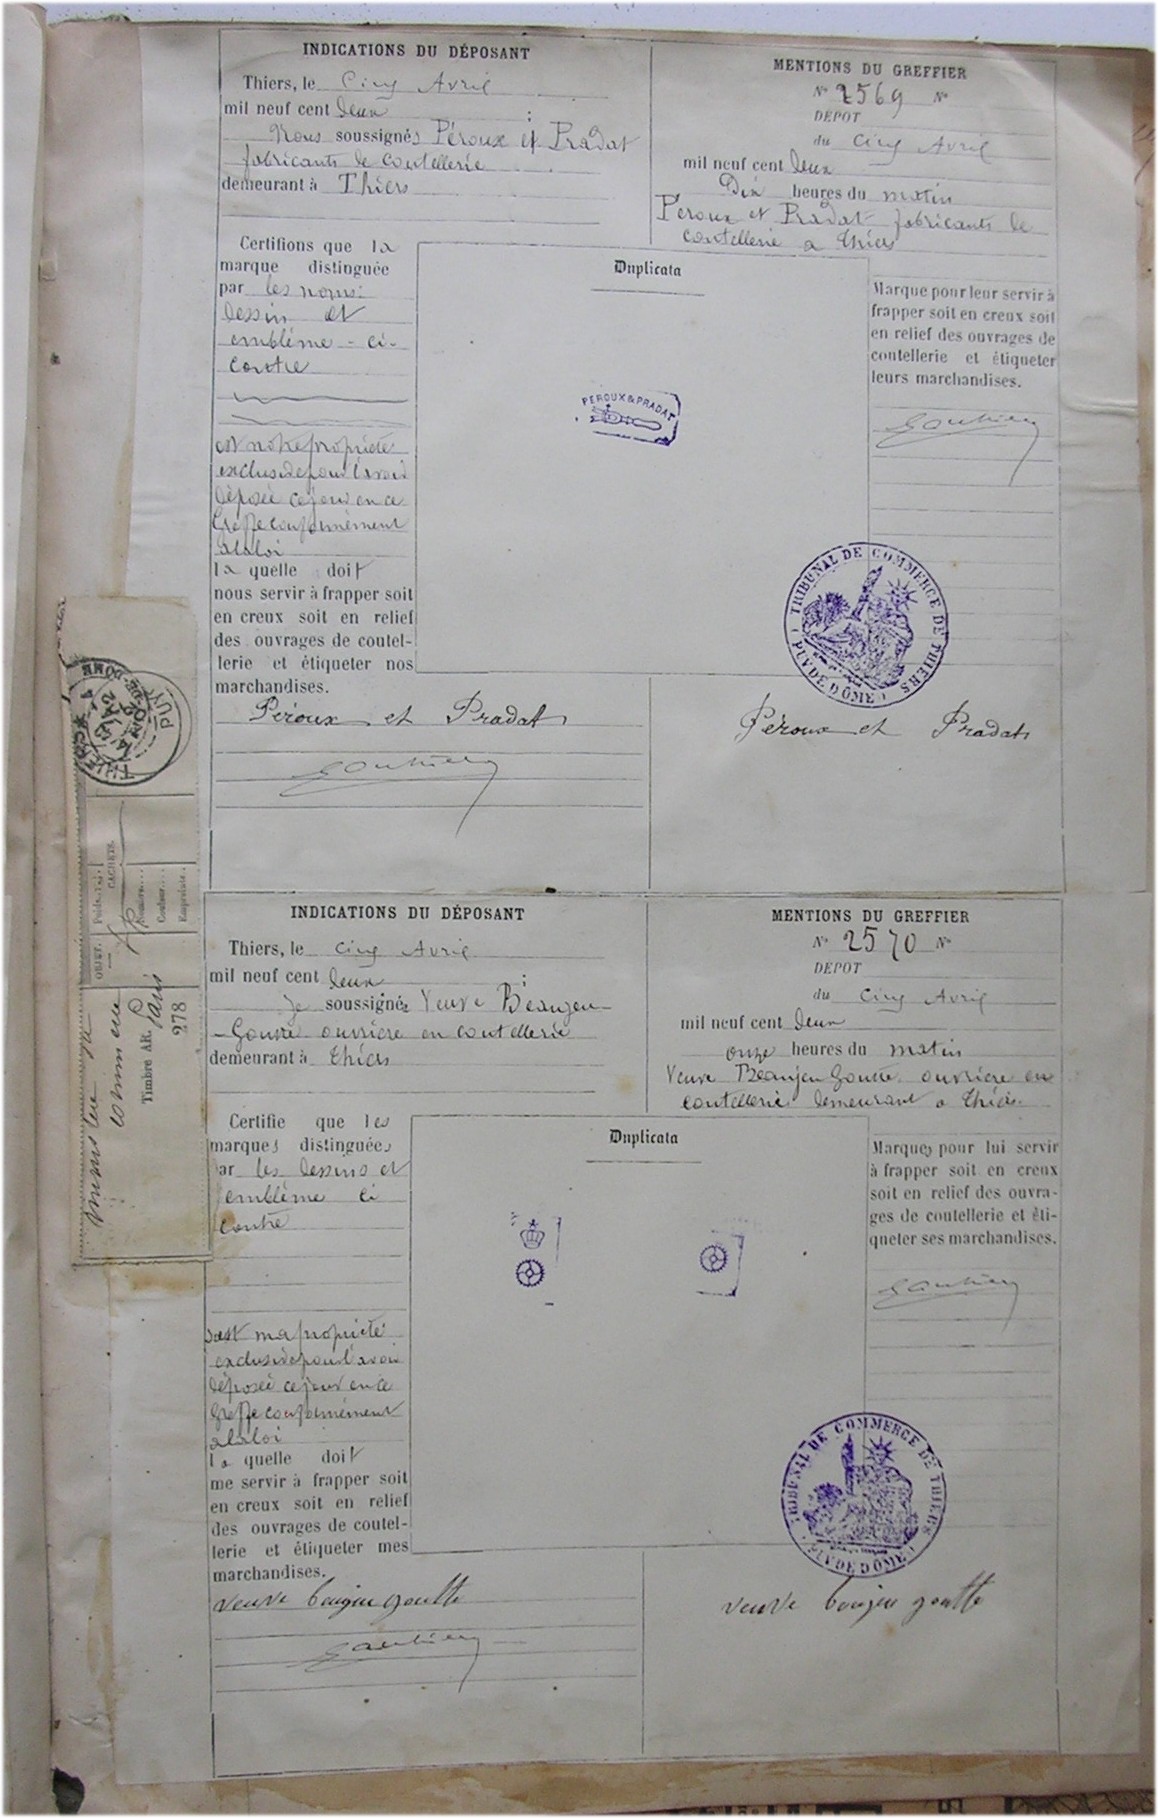 INDICATIONS DU DÉPOSANT
Thiers, le Cinq Avril
mil neuf cent deux
Nous soussignés Péroux et Pradat
fabricants de Coutellerie
demeurant à Thiers
Certifions que la
marque distinguée
par les noms:
dessin et
emblême - ci-
contre
est notre propriété
exclusive pour l'avoir
déposée ce jour en ce
Greffe conformément
a la loi
la quelle doit
nous servir à frapper soit
en creux soit en relief
des ouvrages de coutel-
lerie et étiqueter nos
marchandises.
Péroux et Pradat
Duplicata
PEROUX & PRADAT
MENTIONS DU GREFFIER
N° 2569 N°
DÉPOT
du Cinq Avril
mil neuf cent deux
Dix heures du matin
Peroux et Pradat fabricants de
coutellerie a Thiers
Marque pour leur servir à
frapper soit en creux soit
en relief des ouvrages de
coutellerie et étiqueter
leurs marchandises.
TRIBUNAL DE COMMERCE DE THIERS
PUY DE DÔME
Péroux et Pradat
PUY-DE-DOME
THIERS
OBJET.
Poids
CACHETS.
Nombre
Couleur
Empreinte
Timbre AR.
Paris
278
INDICATIONS DU DÉPOSANT
Thiers, le Cinq Avril
mil neuf cent deux
Je soussignée Veuve Beaujeu
- Goutte ouvrière en coutellerie
demeurant à Thiers
Certifie que les
marques distinguées
par les dessins et
emblême ci
contre
est ma propriété
exclusive pour l'avoir
déposée ce jour en ce
Greffe conformément
a la loi
la quelle doit
me servir à frapper soit
en creux soit en relief
des ouvrages de coutel-
lerie et étiqueter mes
marchandises.
veuve boujeu goutte
Duplicata
MENTIONS DU GREFFIER
N° 2570 N°
DÉPOT
du Cinq Avril
mil neuf cent deux
onze heures du matin
Veuve Beaujeu Goutte ouvrière en
coutellerie demeurant a Thiers
Marques pour lui servir
à frapper soit en creux
soit en relief des ouvra-
ges de coutellerie et éti-
queter ses marchandises.
TRIBUNAL DE COMMERCE DE THIERS
PUY DE DÔME
veuve boujeu goutte